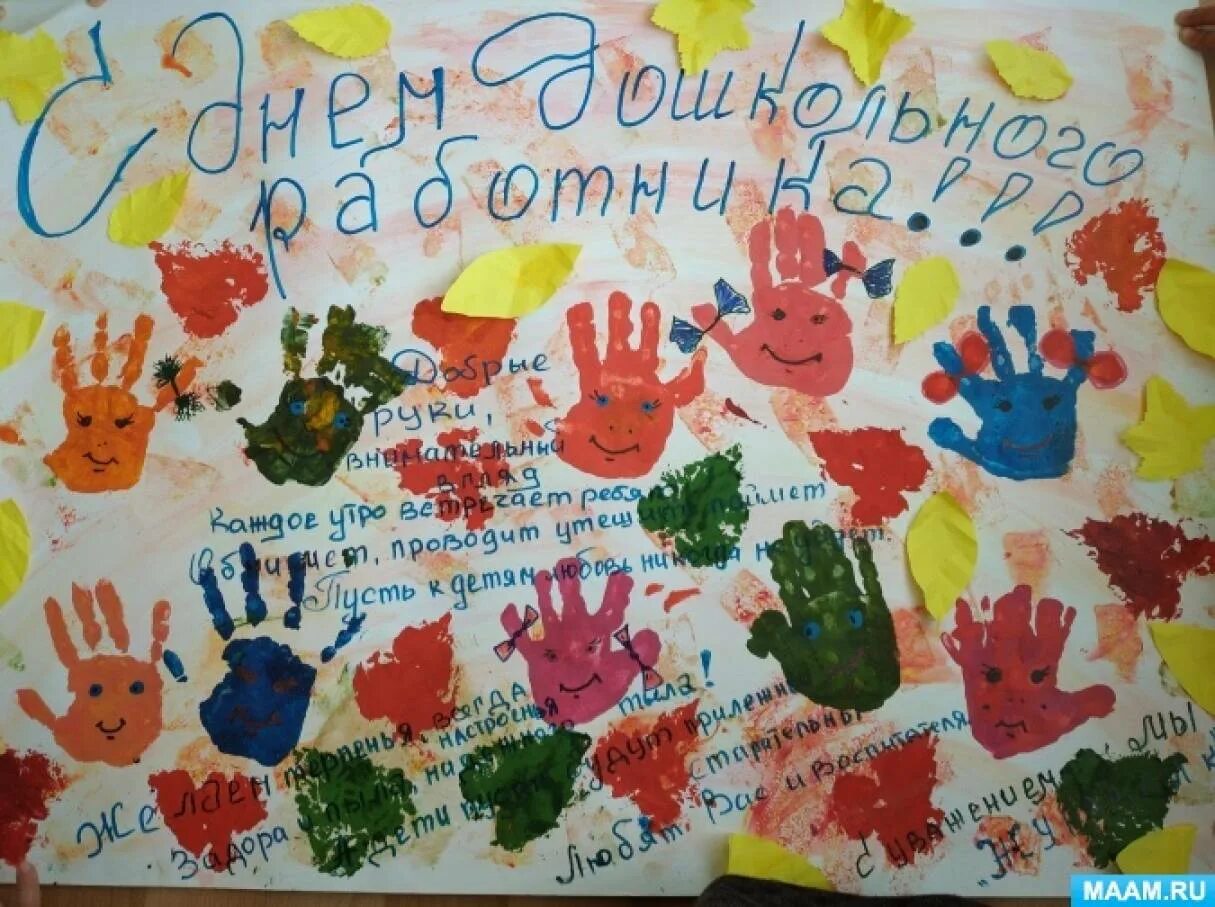 С днем дошкольного
работника!!!
Добрые
руки,
внимательный
взгляд
Каждое утро встречает ребят
Обнимет, проводит, утешит, поймет
Пусть к детям любовь никогда не
Желаем терпенья, всегда настроенья
Задора и пыла, надежного тыла!
А дети пусть будут прилежны, старательны
Любят Вас и воспитателя
С уважением Мы
MAAM.RU